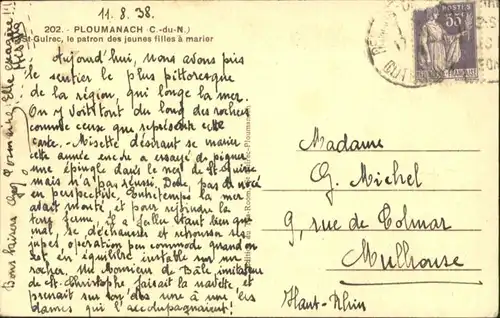 11.8.38.
202. - PLOUMANACH (C.-du-N.)
St-Guirec, le patron des jeunes filles à marier
Aujourd'hui, nous avons pris
le sentier le plus pittoresque
de la région, qui longe la mer.
On y voit tout du long des rochers
comme ceux que représente cette
carte. - Misette désirant se marier
cette année encore a essayé de piquer
une épingle dans le nez de St Guirec
mais n'a pas réussi. Donc, pas de noce
en perspective. Entretemps la mer
avait monté et pour rejoindre la
terre ferme, il a fallu tant bien que
mal, se déchausser et retrousser ses
jupes, opération peu commode quand on
est en équilibre instable sur un
rocher. Un Monsieur de Bâle, imitateur
de St-Christophe faisait la navette, et
prenait sur son dos une à une les
dames qui l'accompagnaient!
Bons baisers
Elle exagère!!
Madame
G. Michel
9, rue de Colmar
Mulhouse
Haut-Rhin
POSTES
55c